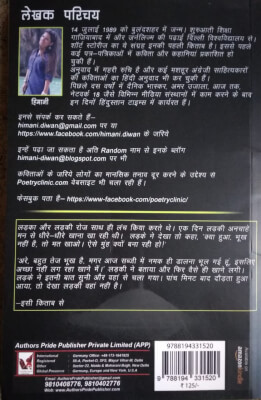 लेखक परिचय
14 जुलाई 1989 को बुलंदशहर में जन्म। शुरुआती शिक्षा
गाज़ियाबाद में और जर्नलिज्म की पढ़ाई दिल्ली विश्वविद्यालय से।
शॉर्ट स्टोरीज का ये संग्रह इनकी पहली किताब है। इससे पहले
कई पत्र-पत्रिकाओं में कविता और कहानियां प्रकाशित हो
चुकी हैं।
अनुवाद में गहरी रूचि है और कई मशहूर अंग्रेजी साहित्यकारों
की कविताओं का हिंदी अनुवाद भी कर चुकी हैं।
पिछले दस वर्षों में दैनिक भास्कर, अमर उजाला, आज तक,
नेटवर्क 18 जैसे विभिन्न मीडिया संस्थानों में काम करने के बाद
इन दिनों हिंदुस्तान टाइम्स में कार्यरत हैं।
हिमानी
इनसे संपर्क कर सकते हैं–
himani.diwan@gmail.com पर या
https://www.facebook/himani.diwan के जरिये
इन्हें पढ़ा जा सकता है अति Random नाम से इनके ब्लॉग
himani-diwan@blogspot.com पर भी
कविताओं के जरिये लोगों का मानसिक तनाव दूर करने के उद्देश्य से
Poetryclinic.com वेबसाइट भी चला रही हैं।
फेसबुक पता है– https://www.facebook.com/poetryclinic/
लड़का और लड़की रोज साथ ही लंच किया करते थे। एक दिन लड़की अनचाहे
मन से धीरे-धीरे खाना खा रही थी। लड़के ने देखा तो कहा, 'क्या हुआ, भूख
नहीं है, तो मत खाओ। ऐसे मुंह क्यों बना रही हो!'
'अरे, बहुत तेज भूख है, मगर आज सब्जी में नमक ही डालना भूल गई हूं, इसलिए
अच्छा नहीं लग रहा खाने में।' लड़की ने बताया और फिर वैसे ही खाने लगी।
लड़के ने इतनी बात सुनी और वहां से चला गया। पांच मिनट बाद दौड़ता हुआ
आया, तो देखा लड़की वहां नहीं है।
–इसी किताब से
Authors Pride Publisher Private Limited (APP)
INTERNATIONAL
Help Line
9810408776, 9810402776
9788194331520
9 788194 331520
₹ 125/-
amazon